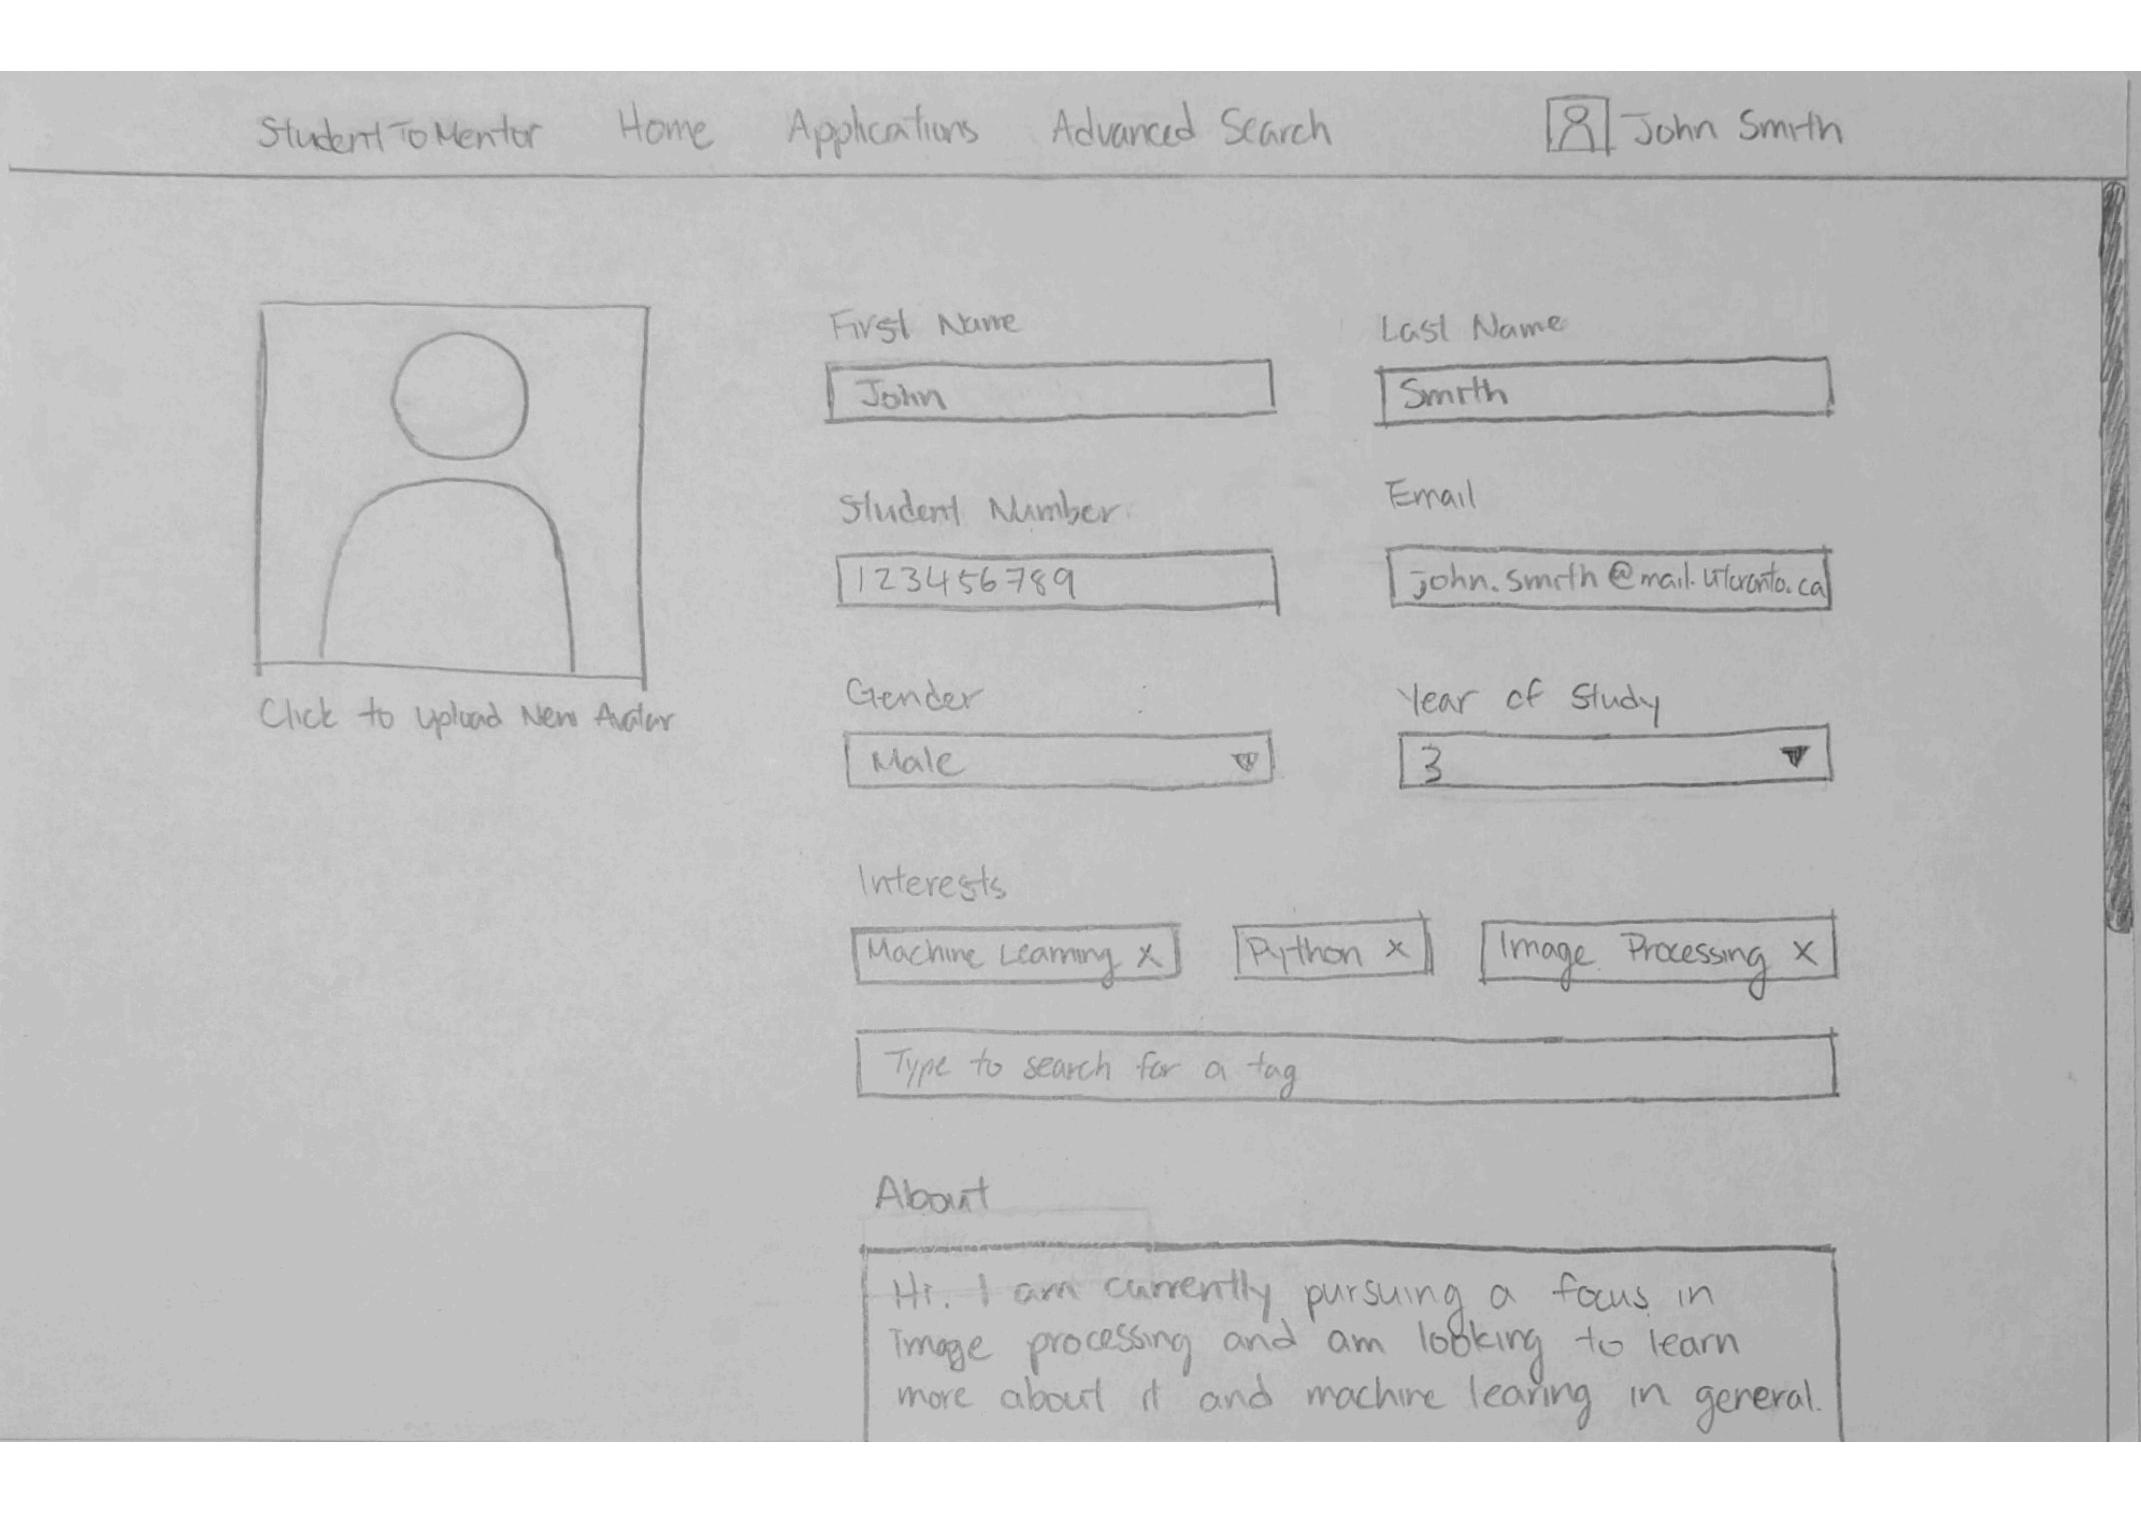 StudentToMentor Home Applications Advanced Search John Smith
First Name Last Name
John Smith
Student Number Email
123456789 john.smith@mail.utoronto.ca
Click to Upload New Avatar
Gender Year of Study
Male 3
Interests
Machine Learning x Python x Image Processing x
Type to search for a tag
About
Hi. I am currently pursuing a focus in
image processing and am looking to learn
more about it and machine learing in general.